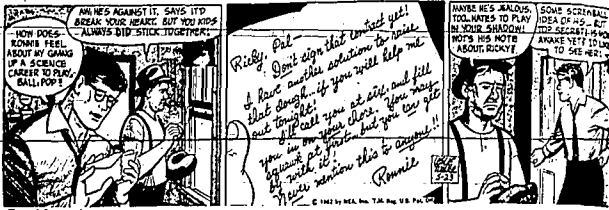 HOW DOES
RONNIE FEEL
ABOUT MY GIVING
UP A SCIENCE
CAREER TO PLAY
BALL, POP?
AH, HE'S AGAINST IT. SAYS IT'D
BREAK YOUR HEART. BUT YOU KIDS
ALWAYS DID STICK TOGETHER.
Ricky, Pal—
Don't sign that contract yet!
I have another solution to raise
that dough—if you will help me
out tonight!
I'll call you at six, and fill
you in on your chore. You may
squawk at first, but you can get
by with it!
Never mention this to anyone!!
Ronnie
5-23
© 1962 by NEA, Inc. T.M. Reg. U.S. Pat. Off.
MAYBE HE'S JEALOUS,
TOO. HATES TO PLAY
IN YOUR SHADOW!
WOT'S HIS NOTE
ABOUT, RICKY?
SOME SCREWBALL
IDEA OF HIS.. BUT
TOP SECRET! IS MOM
AWAKE YET? I'D LIKE
TO SEE HER!